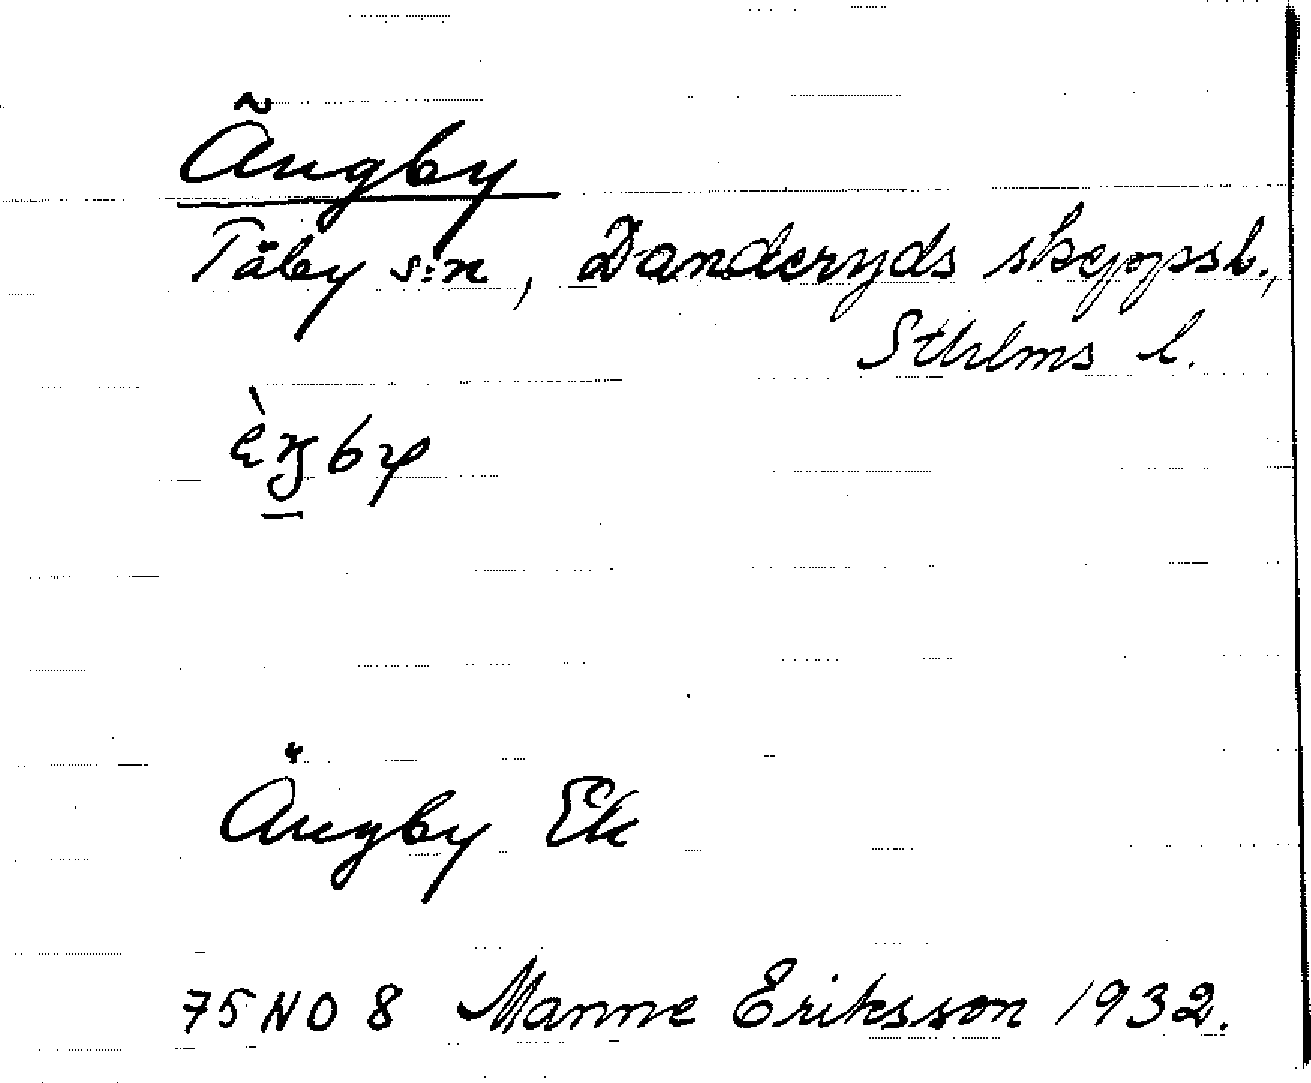 Ängby
Täby s:n, Danderyds skeppsl.,
Sthlms l.
ὲŋby
Ängby Ek
75 NO 8 Manne Eriksson 1932.